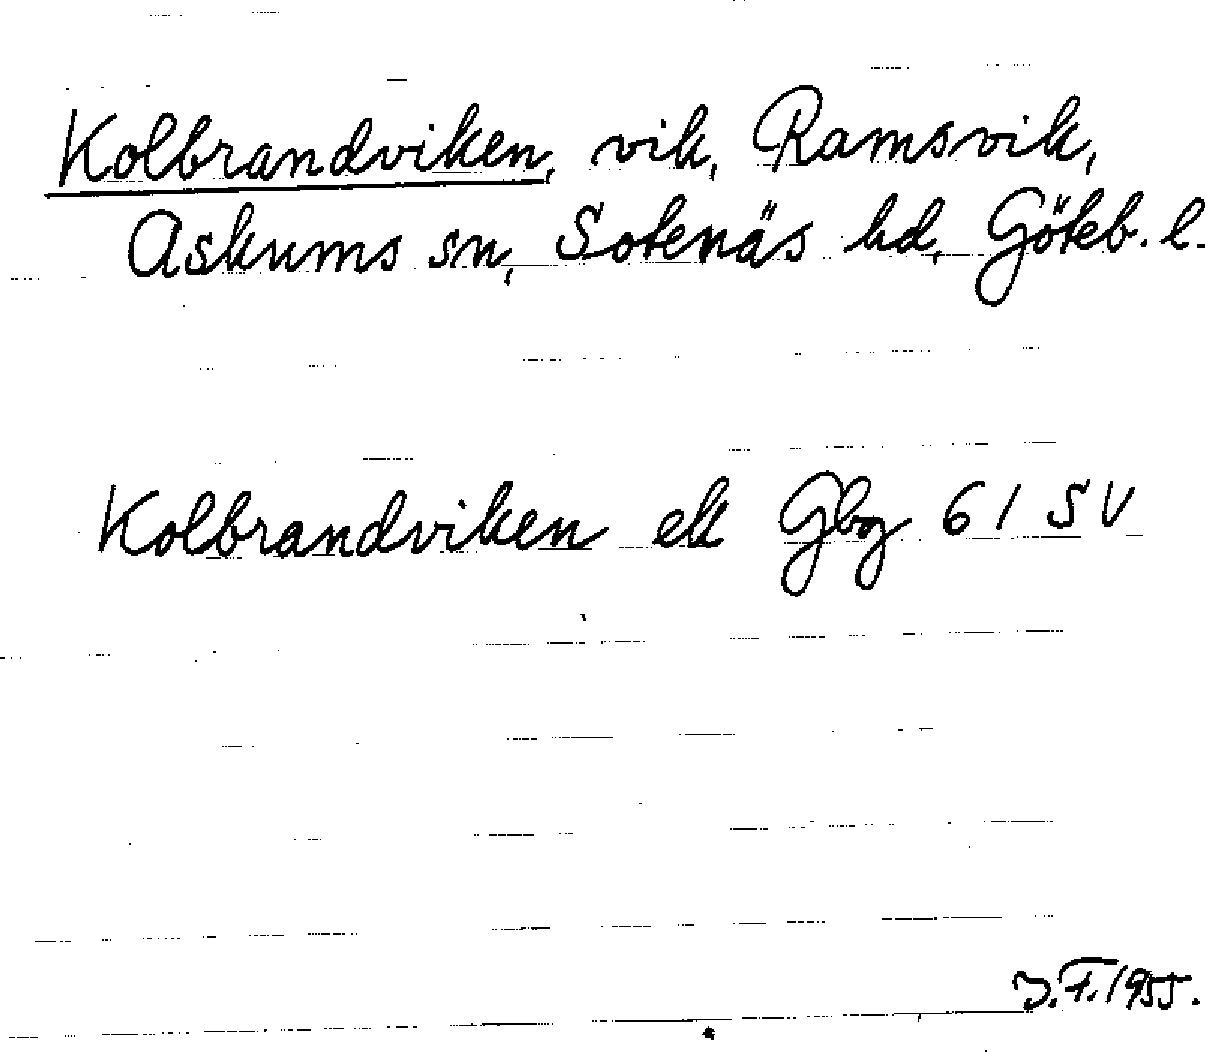 Kolbrandviken, vik, Ramsvik,
Askums sn, Sotenäs hd, Göteb. l.
Kolbrandviken ek Gbg 61 SV
J.F. 1955.